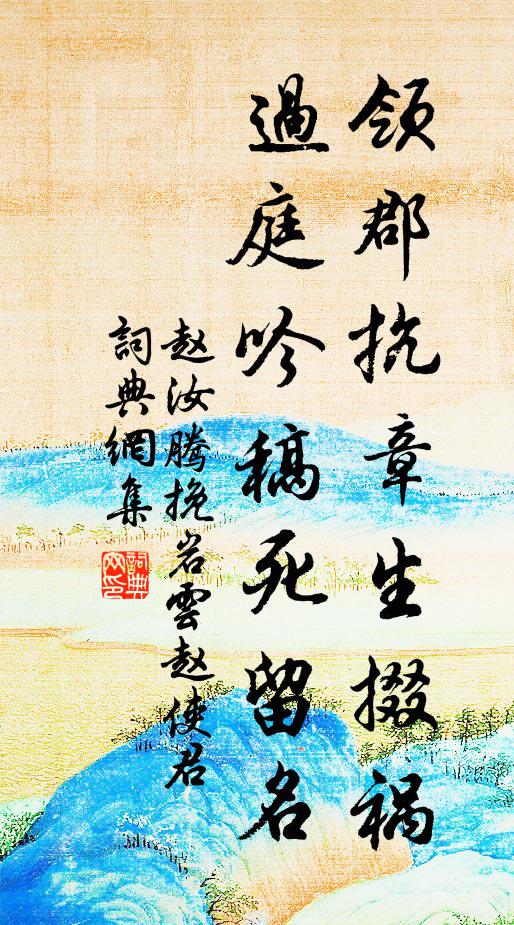 领郡抗章生掇祸
過庭吟稿死留名
赵汝腾挽岩雲赵使君
詞典網集
詞典
网印